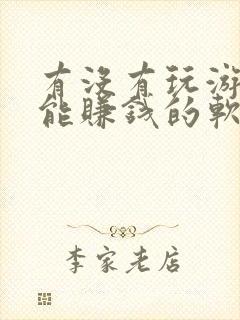 有沒有玩游
能賺錢的軟
李家老店